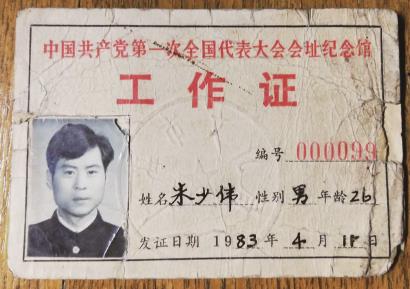 中国共产党第一次全国代表大会会址纪念馆
工作证
编号 000099
姓名 朱少伟 性别 男 年龄 26
发证日期 1983 年 4 月 18 日